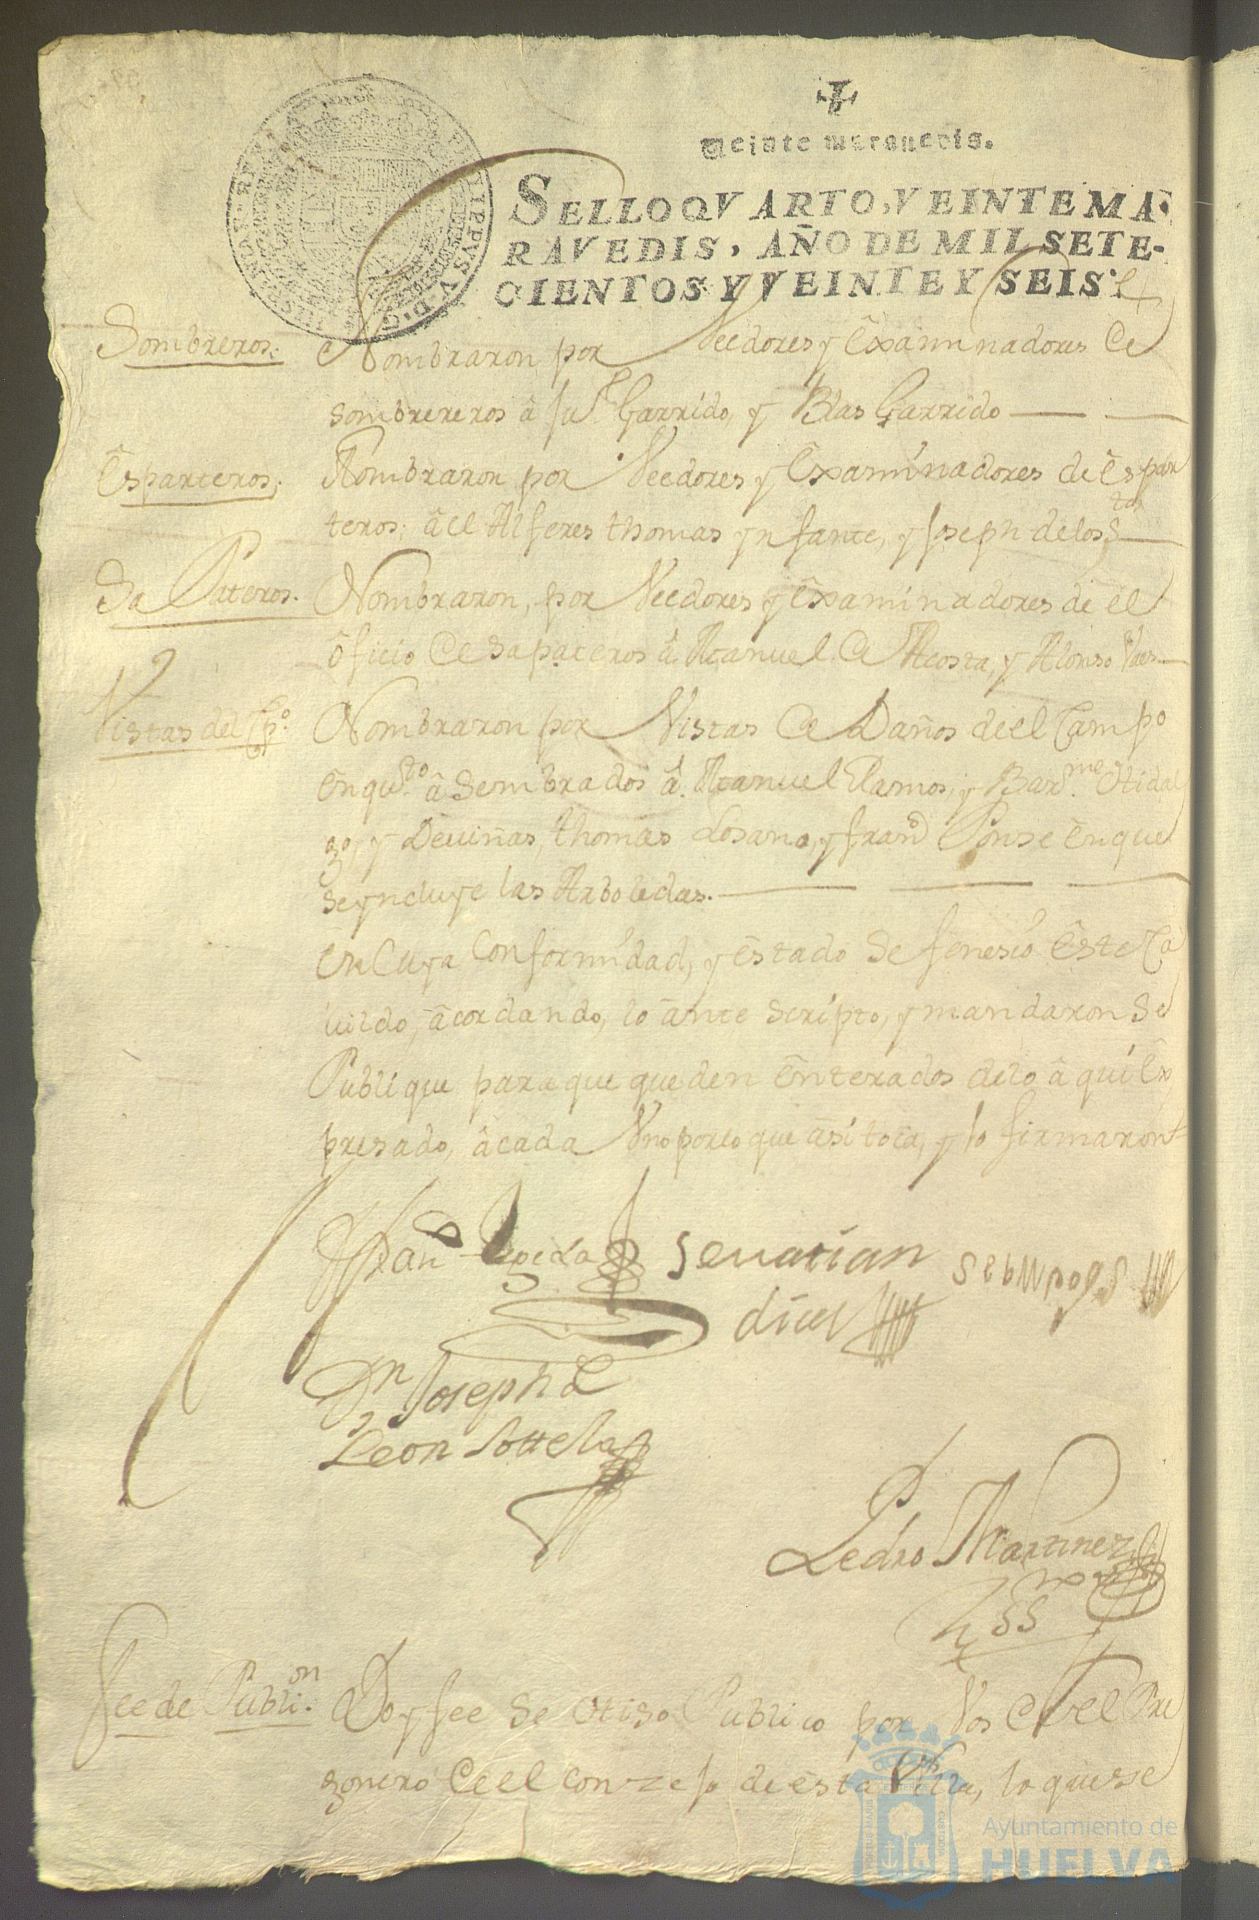 Veinte maravedis.
SELLO QVARTO, VEINTE MA-
RAVEDIS, AÑO DE MIL SETE-
CIENTOS Y VEINTE Y SEIS.
Sombreros. Nombraron por Veedores y Examinadores de
sombrereros â Juº Garrido, y Blas Garrido
Esparteros. Nombraron por Veedores y Examinadores de Espar
teros, â el Alferes thomas ynfante, y Joseph de los Stos
SaPateros. Nombraron, por Veedores y Examinadores de el
ôficio de sapateros â Manuel de Acosta, y Alonso
Vistas del Cpº. Nombraron por Vistas de Daños de el Campo
en quto â Sembrados â Manuel Ramos, y Barme Hidal
go, y De viñas, thomas Losano, y franco Ponse en que
se yncluye las Arboledas.
en Cuya Conformidad, y estado se fenesio Este Ca
vildo, âcordando, lo ânte scripto, y mandaron Se
Publique para que queden enterados de lo âqui Ex
presado, âcada Vno por lo que âsi toca, y lo firmaron
Franco Zepeda Sevatian
diaz
Dn Joseph de
Leon Sottelo
Pedro Martinez
Fee de Publion. Doy fee Se Hiso Publico por Vos de el Pre
gonero de el conzejo de esta Villa, lo que se
Ayuntamiento de
HUELVA